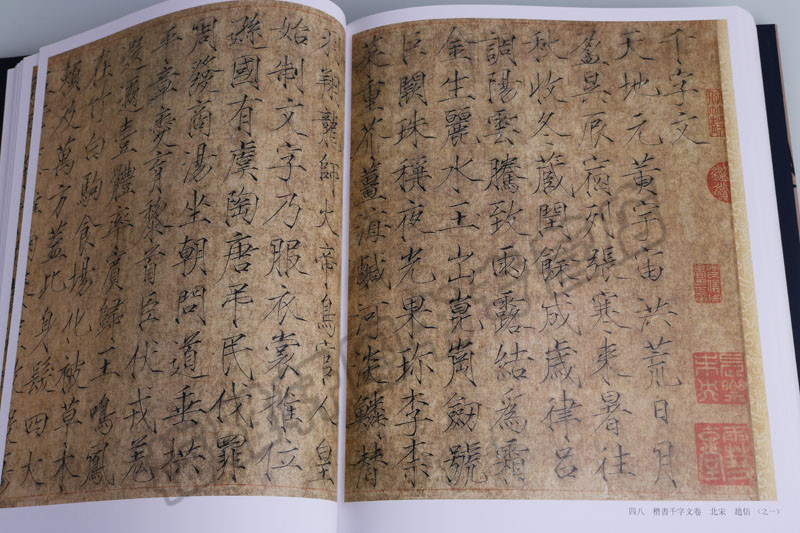 千字文
天地元黄宇宙洪荒日月
盈昃辰宿列張寒来暑往
秋收冬藏閏餘成歲律吕
調陽雲騰致雨露結爲霜
金生麗水玉出崑崗劒號
巨闕珠稱夜光果珍李柰
菜重芥薑海鹹河淡鱗潛
羽翔龍師火帝鳥官人皇
始制文字乃服衣裳推位
遜國有虞陶唐弔民伐罪
周發商湯坐朝問道垂拱
平章愛育黎首臣伏戎羌
遐邇壹體率賓歸王鳴鳳
在竹白駒食場化被草木
賴及萬方蓋此身髮四大
四八 楷書千字文卷 北宋 趙佶 (之一)